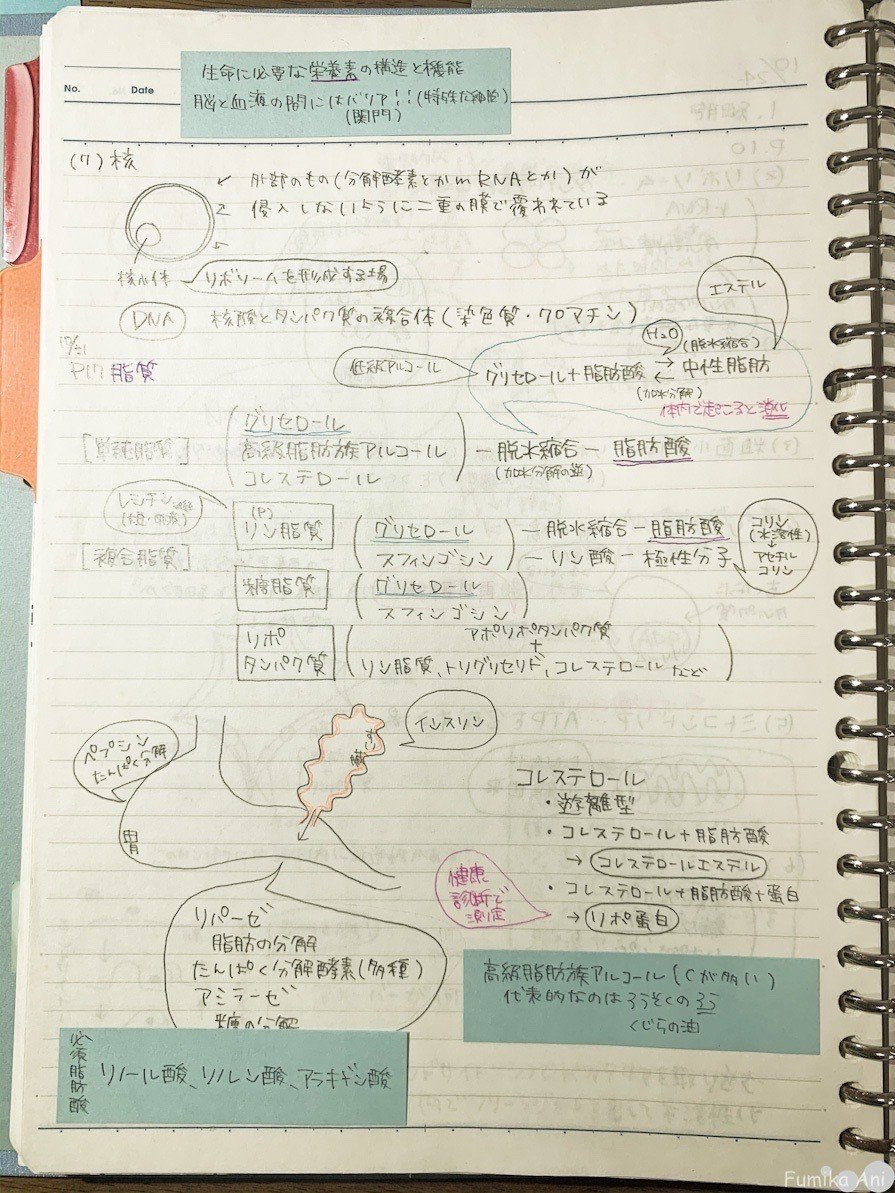 No.
Date
生命に必要な栄養素の構造と機能
脳と血液の間にはバリア!!(特殊な細胞)
(関門)
(7) 核
外部のもの(分解酵素とかmRNAとか)が
侵入しないように二重の膜で覆われている
核小体
リボソームを形成する場
DNA
核酸とタンパク質の複合体(染色質・クロマチン)
エステル
10/31
P17 脂質
低級アルコール
H₂O
(脱水縮合)
グリセロール+脂肪酸 →← 中性脂肪
(加水分解)
体内で起こると消化
[単純脂質]
グリセロール
高級脂肪族アルコール
コレステロール
ー脱水縮合ー脂肪酸
(加水分解の逆)
レシチン
(P)
リン脂質
グリセロール
スフィンゴシン
ー脱水縮合ー脂肪酸
ーリン酸ー極性分子
コリン
(水溶性)
↓
アセチル
コリン
[複合脂質]
糖脂質
グリセロール
スフィンゴシン
リポ
タンパク質
アポリポタンパク質
+
リン脂質、トリグリセリド、コレステロールなど
ペプシン
たんぱく分解
胃
すい臓
インスリン
コレステロール
・遊離型
・コレステロール+脂肪酸
→コレステロールエステル
・コレステロール+脂肪酸+蛋白
→リポ蛋白
健康診断で
測定
リパーゼ
脂肪の分解
たんぱく分解酵素(多種)
アミラーゼ
糖の分解
高級脂肪族アルコール(Cが多い)
代表的なのはろうそくのろう
くじらの油
必須脂肪酸
リノール酸、リノレン酸、アラキドン酸
Fumika Ani